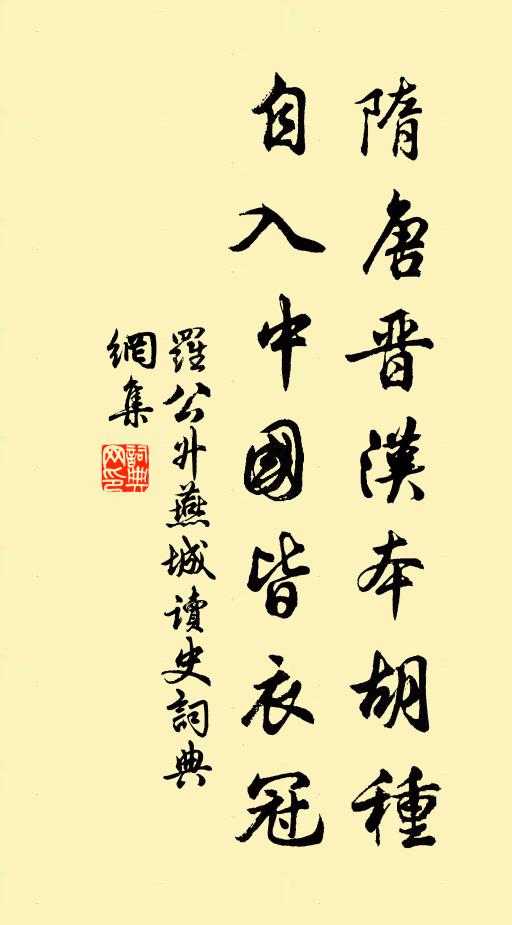 隋唐晋漢本胡種
自入中國皆衣冠
羅公外燕城讀史詞典
網集
詞典
网印